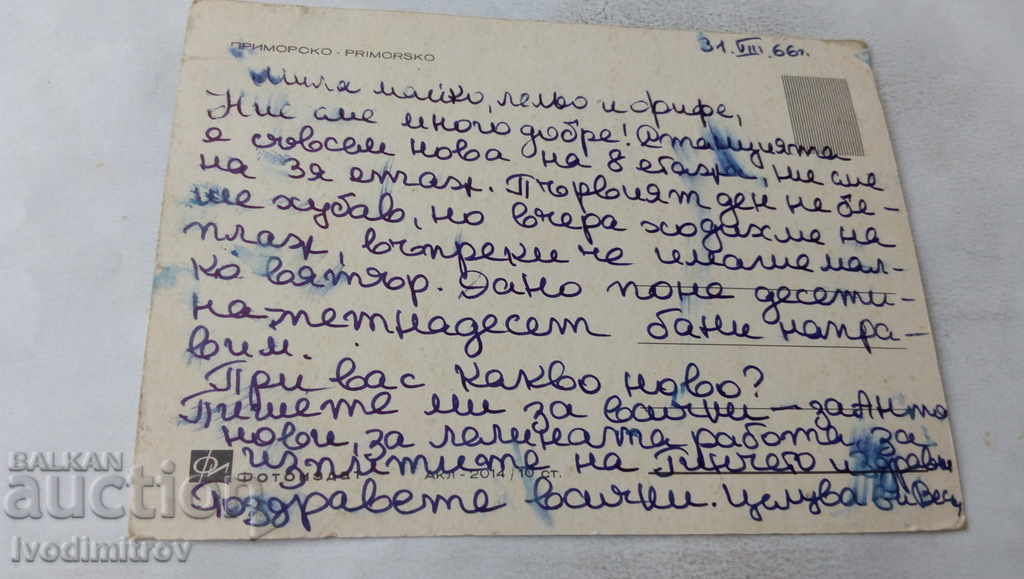 31. VIII. 66г.
ПРИМОРСКО - PRIMORSKO
Мила майко, лельо и Фифе,
Ние сме много добре! Станцията
е съвсем нова на 8 етажа, ние сме
на 3я етаж. Първият ден не бе-
ше хубав, но вчера ходихме на
плаж, въпреки че имаше мал-
ко вятър. Дано поне десети-
на-петнадесет бани напра-
вим.
При вас какво ново?
Пишете ми за всички - за Анто
нови, за лелината работа, за
изпитите на Пинчето и
ФОТОИЗДАТ АКЛ - 2014 / 10 ст.
Поздравете всички. Целува ви Весу
BALKAN
auction
Ivodimitrov